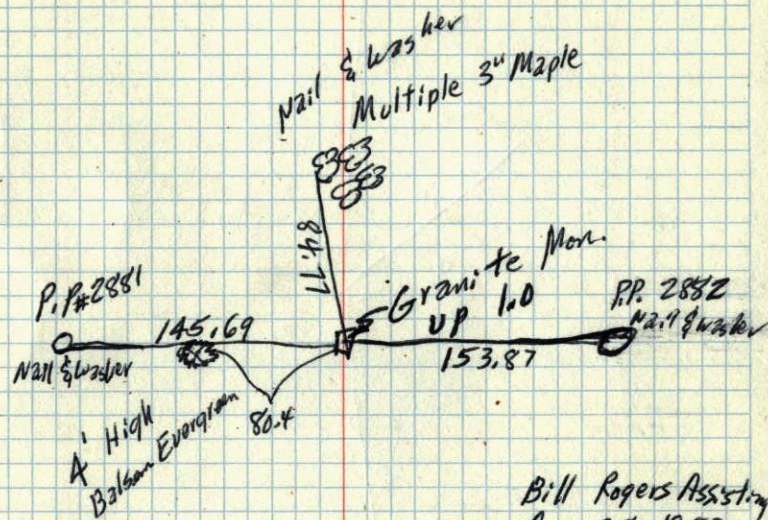 Nail & Washer
Multiple 3" Maple
84.77
Granite Mon.
UP 1.0
P.P.#2881
145.69
Nail & Washer
P.P. 2882
Nail & Washer
153.87
80.4
4' High
Balsam Evergreen
Bill Rogers Assisting